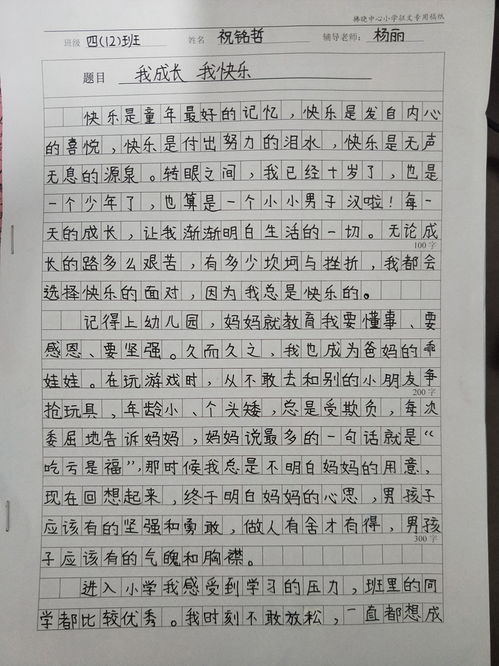 拂晓中心小学征文专用稿纸
班级 四(12)班 姓名 祝铭哲 辅导老师: 杨丽
题目 我成长 我快乐
快乐是童年最好的记忆，快乐是发自内心
的喜悦，快乐是付出努力的泪水，快乐是无声
无息的源泉。转眼之间，我已经十岁了，也是
一个少年了，也算是一个小小男子汉啦！每一
天的成长，让我渐渐明白生活的一切。无论成
100字
长的路多么艰苦，有多少坎坷与挫折，我都会
选择快乐的面对，因为我总是快乐的。
记得上幼儿园，妈妈就教育我要懂事、要
感恩、要坚强。久而久之，我也成为爸妈的乖
娃娃。在玩游戏时，从不敢去和别的小朋友争
200字
抢玩具，年龄小、个头矮，总是受欺负，每次
委屈地告诉妈妈，妈妈说最多的一句话就是“
吃亏是福”，那时候我总是不明白妈妈的用意、
现在回想起来，终于明白妈妈的心思，男孩子
应该有的坚强和勇敢，做人有舍才有得，男孩
300字
子应该有的气魄和胸襟。
进入小学我感受到学习的压力，班里的同
学都比较优秀。我时刻不敢放松，一直都想成